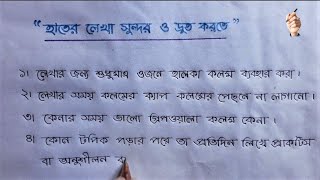 "হাতের লেখা সুন্দর ও দ্রুত করতে"
১। লেখার জন্য শুধুমাত্র ওজনে হালকা কলম ব্যবহার করা।
২। লেখার সময় কলমের ক্যাপ কলমের পেছনে না লাগানো।
৩। কেনার সময় ভালো গ্রিপওয়ালা কলম কেনা।
৪। কোন টপিক পড়ার পরে তা প্রতিদিন লিখে প্রাকটিস
বা অনুশীলন ক